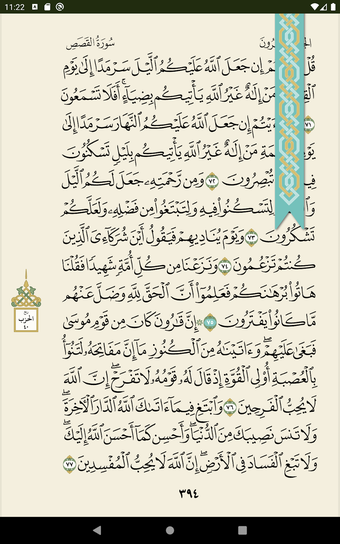 11:22
سُورَةُ القَصَصِ
قُلْ إِن جَعَلَ ٱللَّهُ عَلَيْكُمُ ٱلَّيْلَ سَرْمَدًا إِلَىٰ يَوْمِ
مَنْ إِلَٰهٌ غَيْرُ ٱللَّهِ يَأْتِيكُم بِضِيَآءٍ ۖ أَفَلَا تَسْمَعُونَ
٧١ إِن جَعَلَ ٱللَّهُ عَلَيْكُمُ ٱلنَّهَارَ سَرْمَدًا إِلَىٰ
مَنْ إِلَٰهٌ غَيْرُ ٱللَّهِ يَأْتِيكُم بِلَيْلٍ تَسْكُنُونَ
تُبْصِرُونَ ٧٢ وَمِن رَّحْمَتِهِۦ جَعَلَ لَكُمُ ٱلَّيْلَ
لِتَسْكُنُوا۟ فِيهِ وَلِتَبْتَغُوا۟ مِن فَضْلِهِۦ وَلَعَلَّكُمْ
تَشْكُرُونَ ٧٣ وَيَوْمَ يُنَادِيهِمْ فَيَقُولُ أَيْنَ شُرَكَآءِىَ ٱلَّذِينَ
كُنتُمْ تَزْعُمُونَ ٧٤ وَنَزَعْنَا مِن كُلِّ أُمَّةٍ شَهِيدًا فَقُلْنَا
هَاتُوا۟ بُرْهَٰنَكُمْ فَعَلِمُوٓا۟ أَنَّ ٱلْحَقَّ لِلَّهِ وَضَلَّ عَنْهُم
مَّا كَانُوا۟ يَفْتَرُونَ ٧٥ ۞ إِنَّ قَٰرُونَ كَانَ مِن قَوْمِ مُوسَىٰ
فَبَغَىٰ عَلَيْهِمْ ۖ وَءَاتَيْنَٰهُ مِنَ ٱلْكُنُوزِ مَآ إِنَّ مَفَاتِحَهُۥ لَتَنُوٓأُ
بِٱلْعُصْبَةِ أُو۟لِى ٱلْقُوَّةِ إِذْ قَالَ لَهُۥ قَوْمُهُۥ لَا تَفْرَحْ ۖ إِنَّ ٱللَّهَ
لَا يُحِبُّ ٱلْفَرِحِينَ ٧٦ وَٱبْتَغِ فِيمَآ ءَاتَىٰكَ ٱللَّهُ ٱلدَّارَ ٱلْءَاخِرَةَ ۖ
وَلَا تَنسَ نَصِيبَكَ مِنَ ٱلدُّنْيَا ۖ وَأَحْسِن كَمَآ أَحْسَنَ ٱللَّهُ إِلَيْكَ ۖ
وَلَا تَبْغِ ٱلْفَسَادَ فِى ٱلْأَرْضِ ۖ إِنَّ ٱللَّهَ لَا يُحِبُّ ٱلْمُفْسِدِينَ ٧٧
الحِزْب
٤٠
٣٩٤